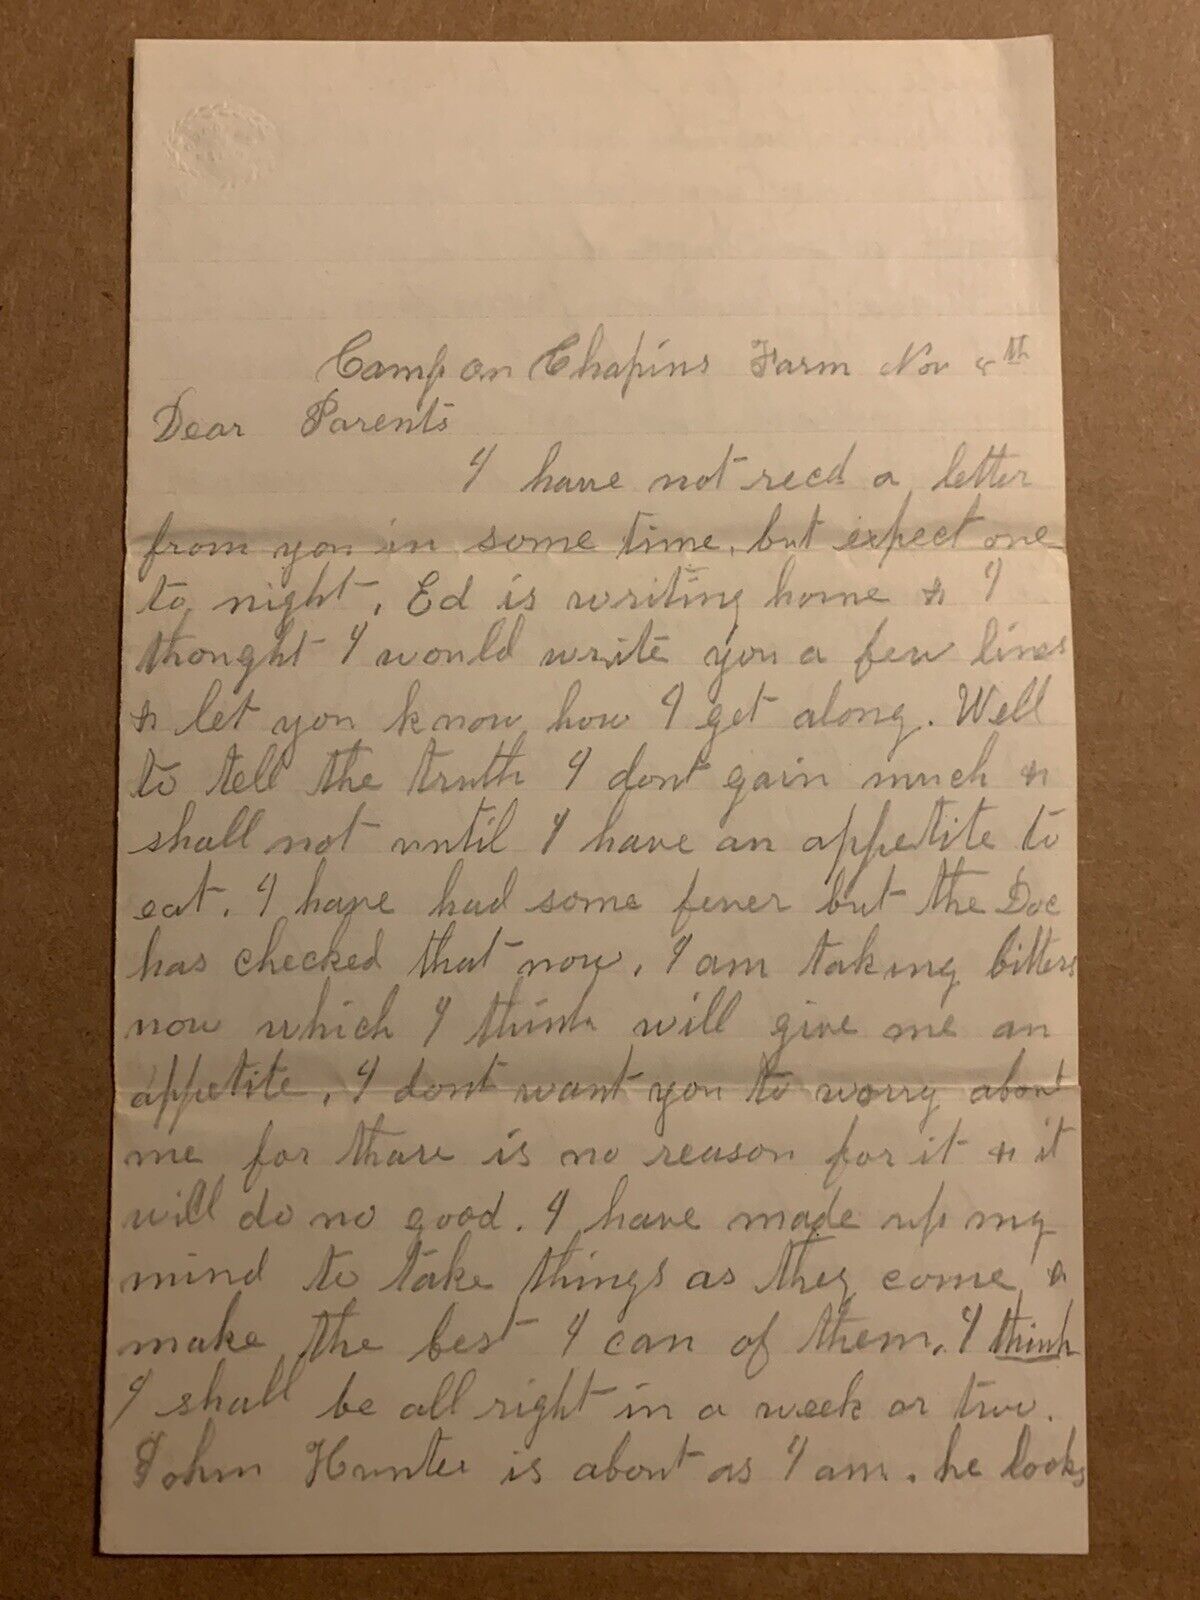 Camp on Chapins Farm Nov 8th
Dear Parents
I have not recd a letter
from you in some time, but expect one
to night, Ed is writing home & I
thought I would write you a few lines
& let you know how I get along. Well
to tell the truth I dont gain much &
shall not until I have an appetite to
eat. I have had some fever but the Doc
has checked that now, I am taking bitters
now which I think will give me an
appetite, I dont want you to worry about
me for thare is no reason for it & it
will do no good. I have made up my
mind to take things as they come &
make the best I can of them, I think
I shall be all right in a week or two.
John Hunter is about as I am. he looks